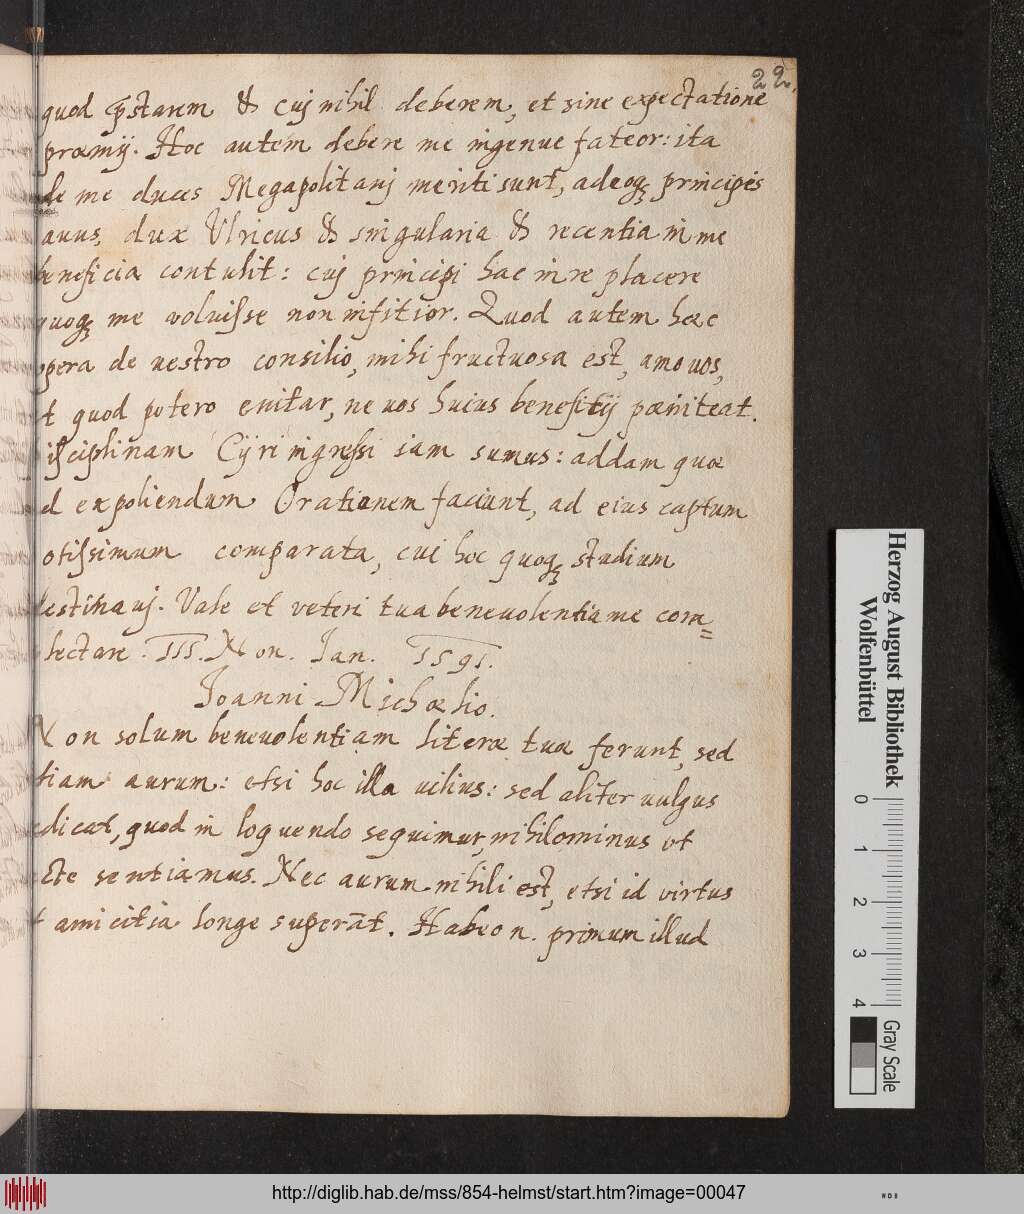 22.
quod p̄starem & cuj nihil deberem, et sine expectatione
præmij. Hoc autem debere me ingenue fateor: ita
de me duces Megapolitanj meriti sunt, adeoq₃ principis
auus, dux Ulricus & singularia & recentia in me
beneficia contulit: cuj principi hac in re placere
quoq₃ me voluisse non infitior. Quod autem hæc
opera de vestro consilio, mihi fructuosa est, amo vos,
t quod potero enitar, ne vos huius beneficij pæniteat.
isciplinam Cyri ingressi iam sumus: addam quæ
d expoliendum Orationem faciunt, ad eius captum
otissimum comparata, cui hoc quoq₃ studium
destinauj. Vale et veteri tua beneuolentia me com=
lectare. III. Non. Jan. 1591.
Joanni Michælio.
Non solum beneuolentiam literæ tuæ ferunt, sed
tiam aurum: etsi hoc illa vilius: sed aliter vulgus
dicat, quod in loquendo sequimur, nihilominus vt
cte sentiamus. Nec aurum nihili est, etsi id virtus
t amicitia longe superāt. Habeo n. primum illud
Herzog August Bibliothek
Wolfenbüttel
0 1 2 3 4
Gray Scale
http://diglib.hab.de/mss/854-helmst/start.htm?image=00047